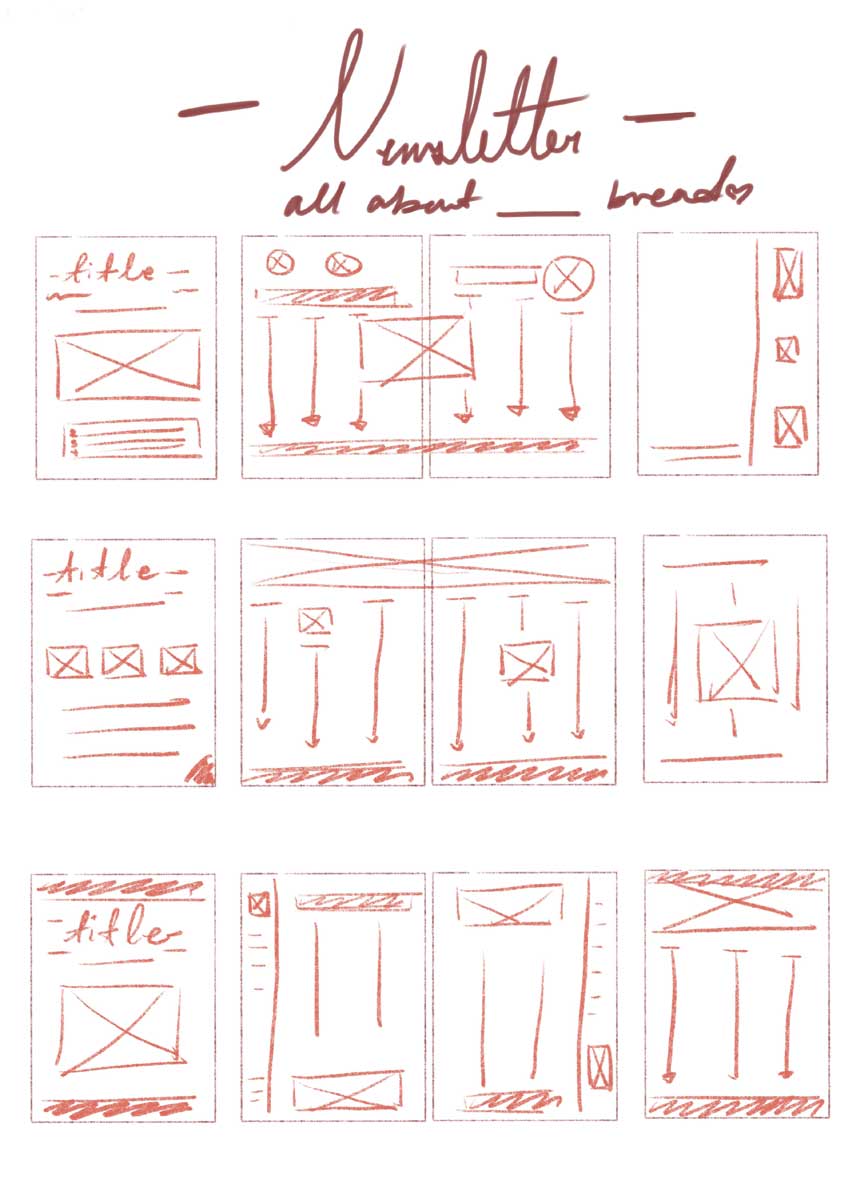 — Newsletter —
all about ___ bread♡
-title-
-title-
-title-